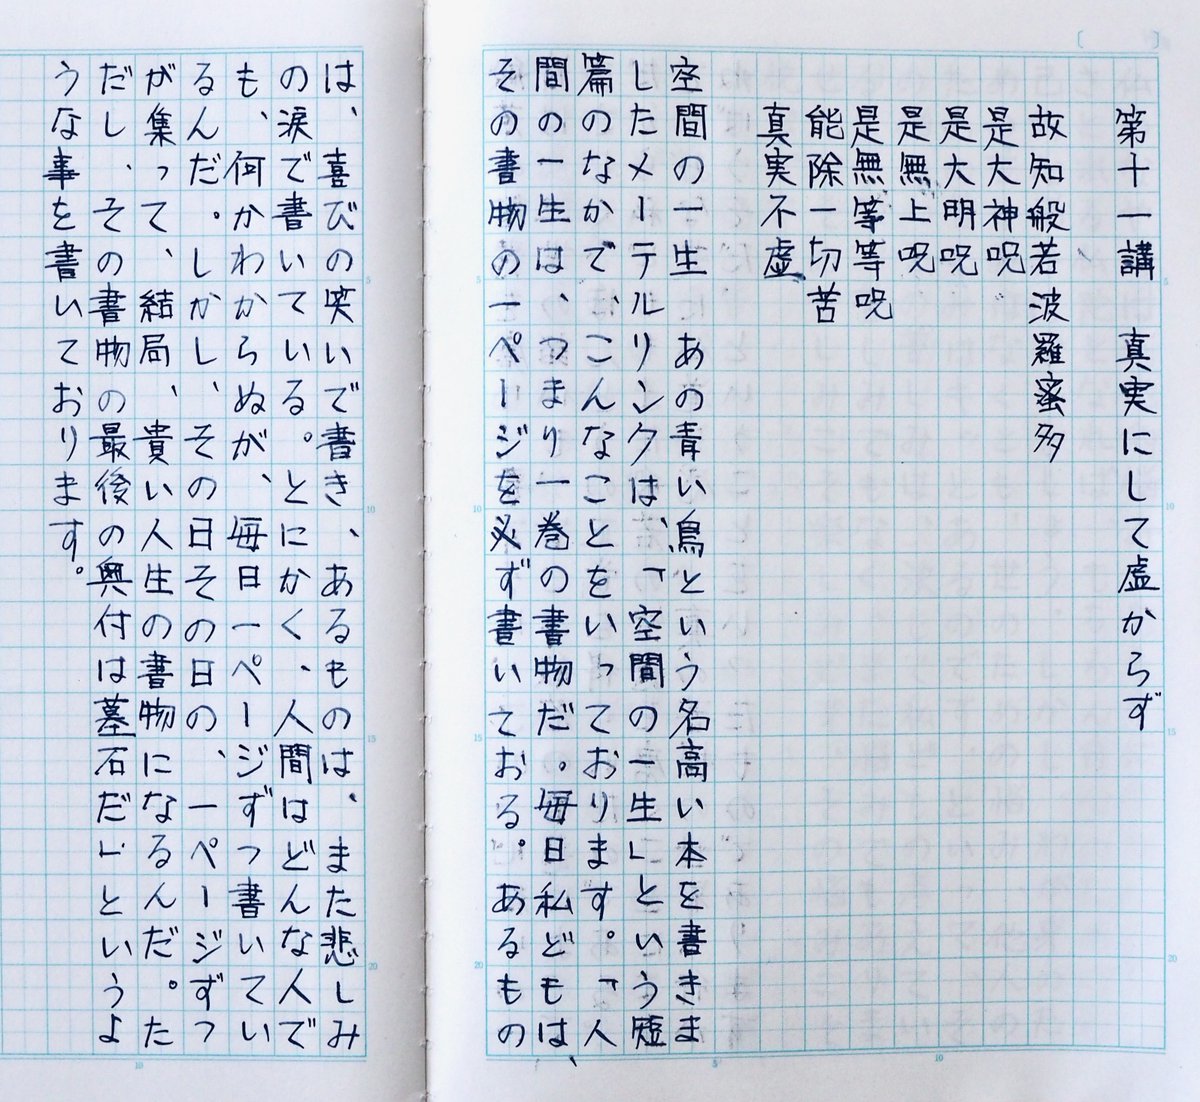 第十一講　真実にして虚からず
故知般若波羅蜜多
是大神呪
是大明呪
是無上呪
是無等等呪
能除一切苦
真実不虚
空間の一生　あの青い鳥という名高い本を書きま
したメーテルリンクは、「空間の一生」という短
篇のなかで、こんなことをいっております。「人
間の一生は、つまり一巻の書物だ。毎日私どもは、
その書物の一ページを必ず書いておる。あるもの
は、喜びの笑いで書き、あるものは、また悲しみ
の涙で書いている。とにかく、人間はどんな人で
も、何かわからぬが、毎日一ページずつ書いてい
るんだ。しかし、その日その日の、一ページずつ
が集って、結局、貴い人生の書物になるんだ。た
だし、その書物の最後の奥付は墓石だ」というよ
うな事を書いております。
5
10
15
20
5
10
5
10
15
20
10